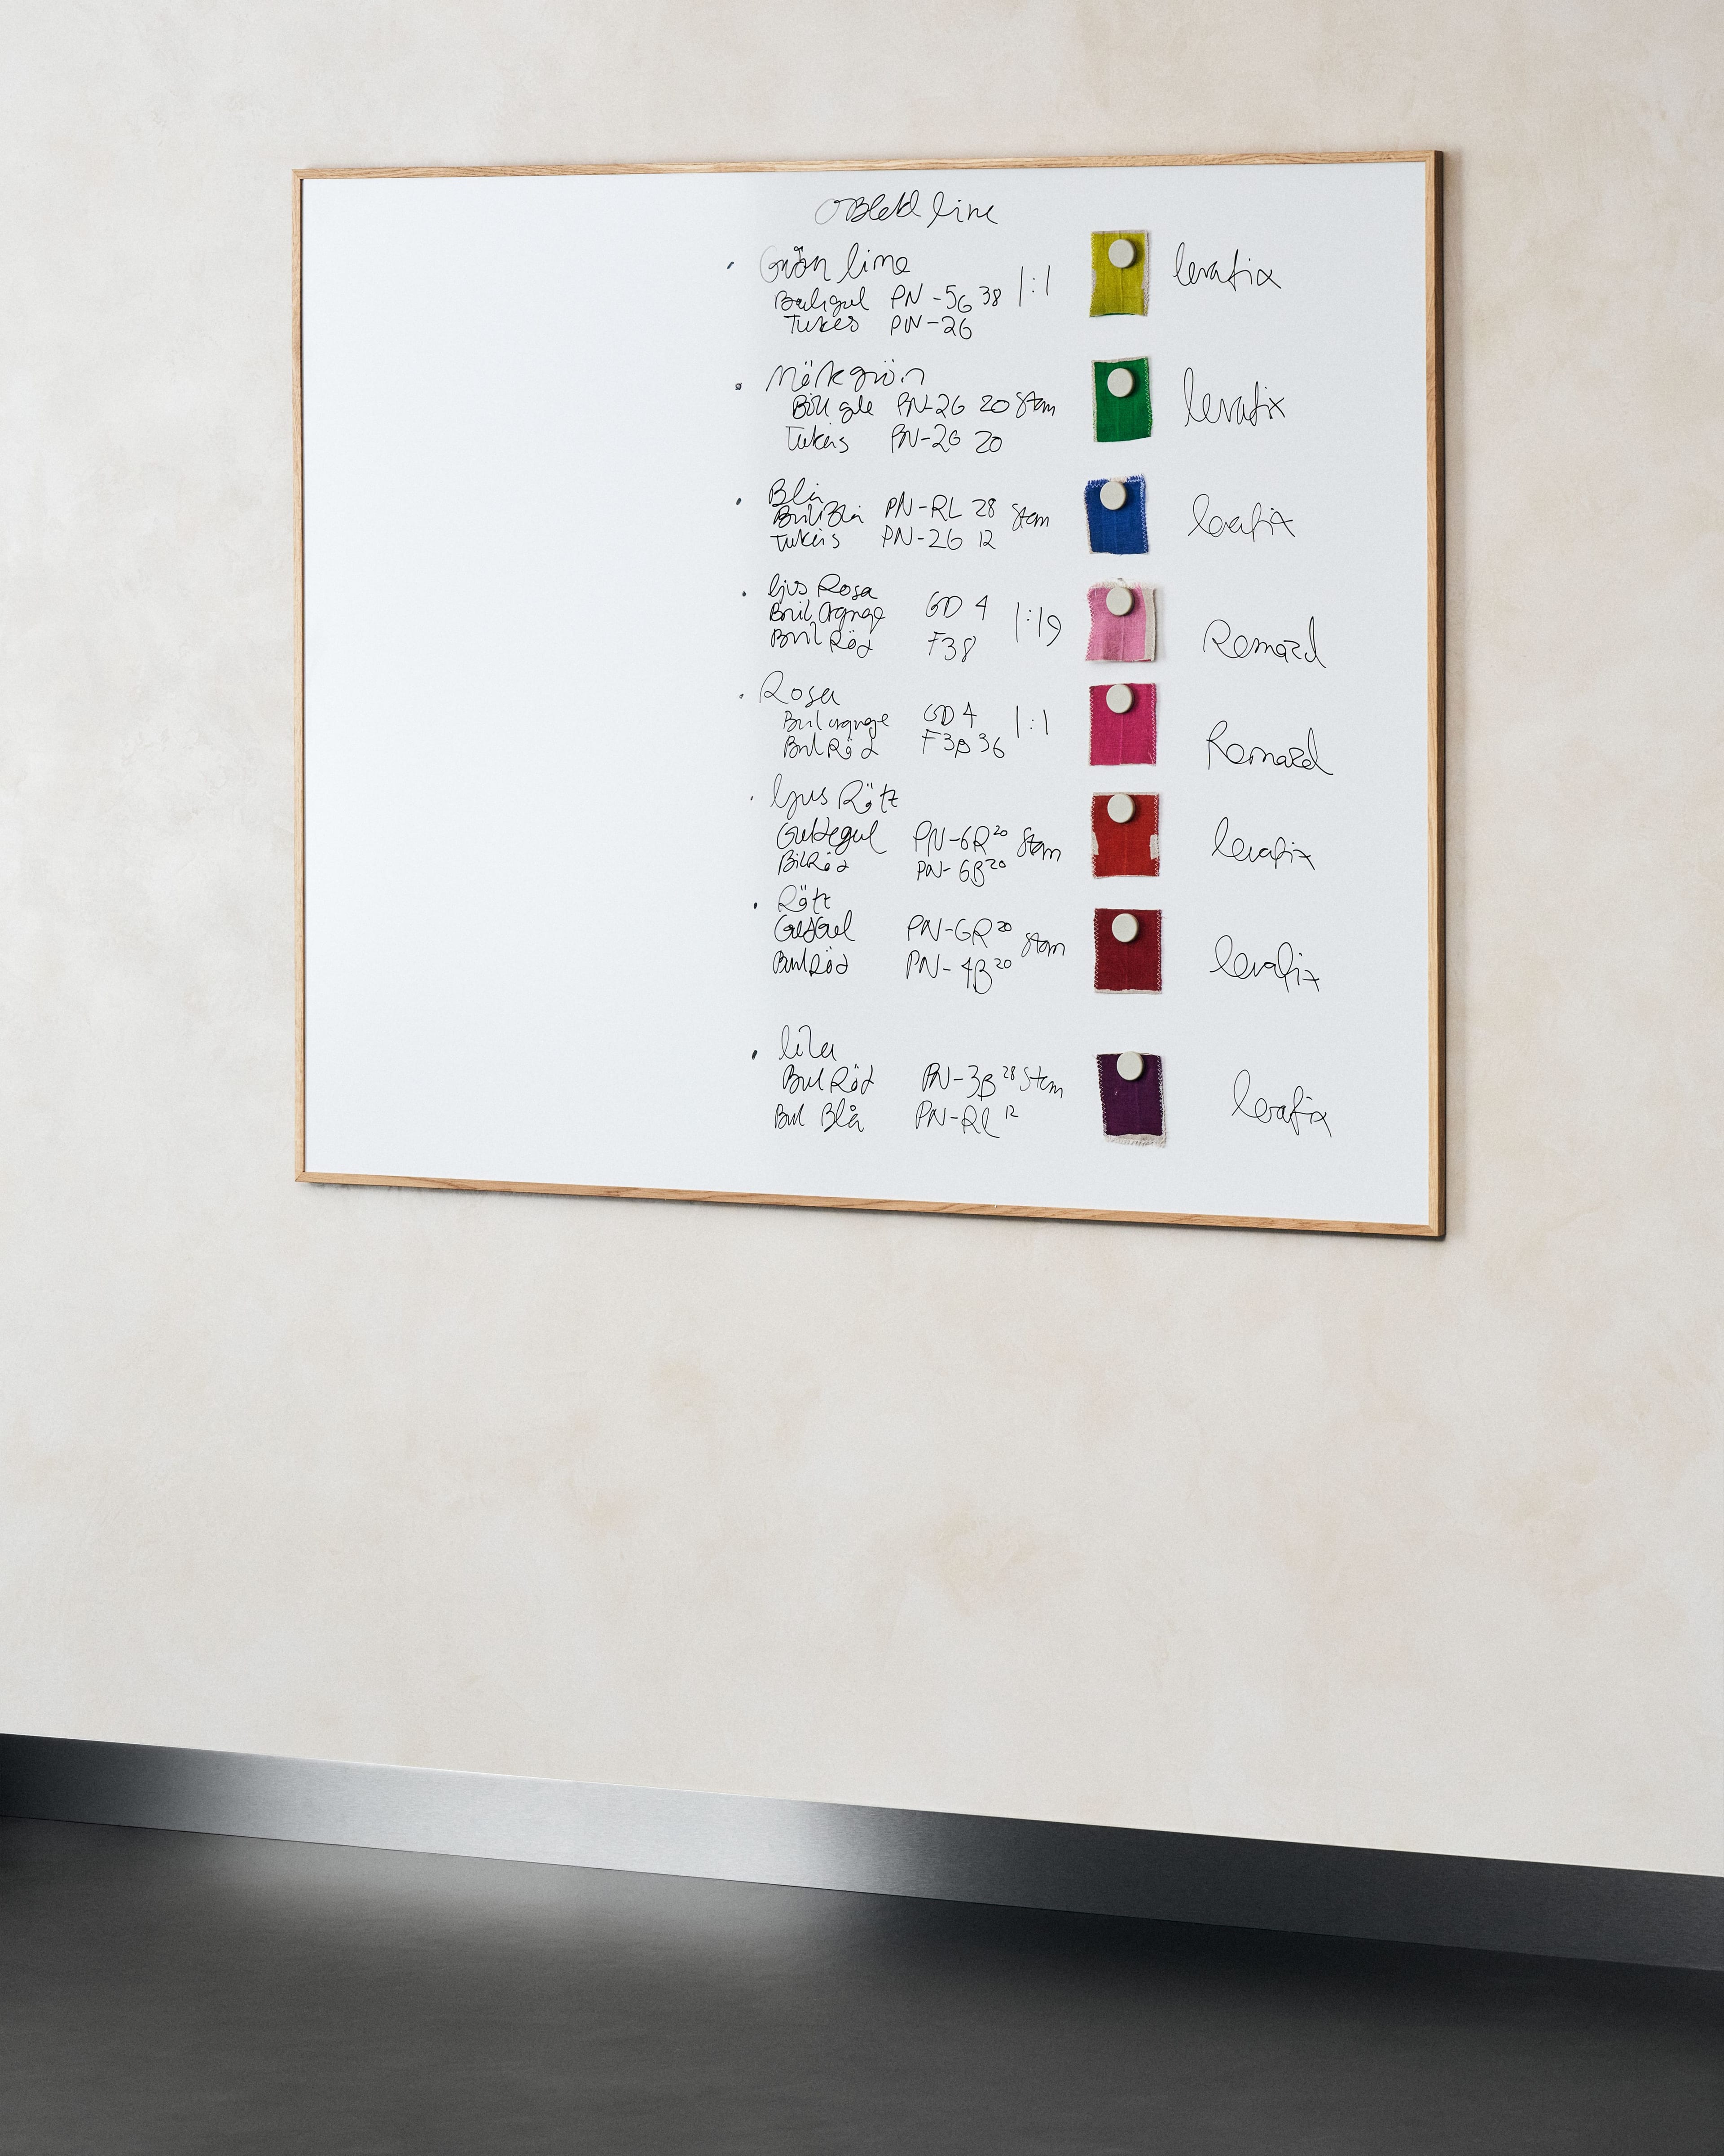 Blekt line
Grön lime
PN-5G 38 1:1 levafix
Turkis PN-2G
Mörkgrön
PN-2G 20 Stam levafix
Turkis PN-2G 20
Blå
Bril Blå PN-RL 28 Stam levafix
Turkis PN-2G 12
ljus Rosa
Bril Orange GD 4 1:19 Remazol
Bril Röd F38
Rosa
Bril orange GD 4 1:1 Remazol
Bril Röd F3B 36
ljus Rött
Guldgul PN-6R 20 Stam levafix
Bil Röd PN-6B 20
Rött
PN-GR 20 Stam levafix
Bril Röd PN-4B 20
lila
Bril Röd PN-3B 28 Stam levafix
Bril Blå PN-RL 12